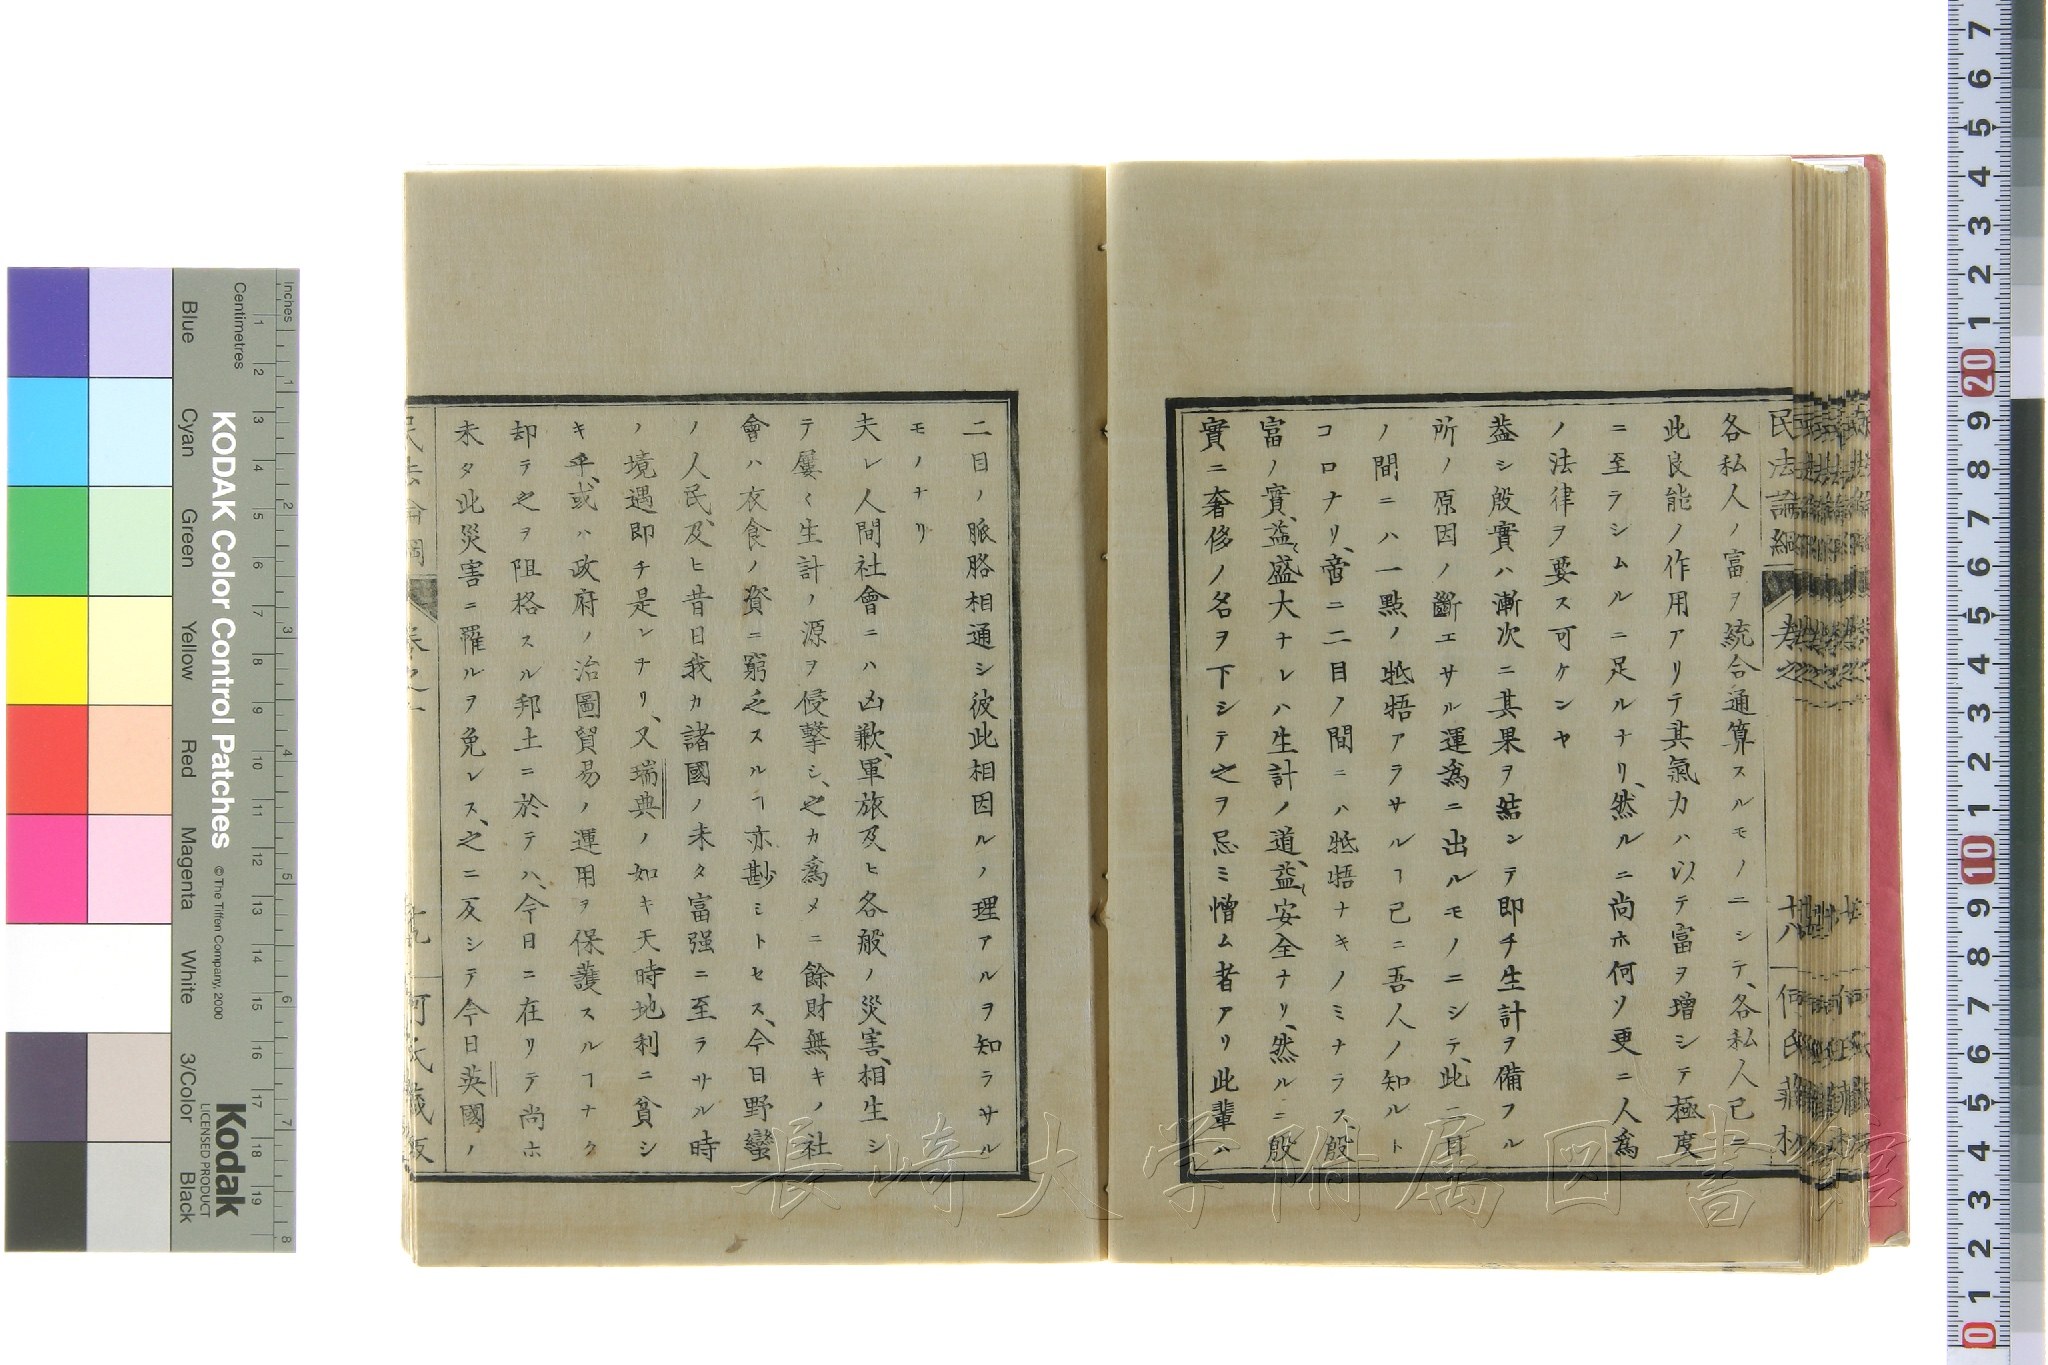 各私人ノ富ヲ統合通算スルモノニシテ、各私人已ニ
此良能ノ作用アリテ其氣力ハ以テ富ヲ增シテ極度
ニ至ラシムルニ足ルナリ、然ルニ尚ホ何ソ更ニ人爲
ノ法律ヲ要ス可ケンヤ
葢シ殷實ハ漸次ニ其果ヲ結ンテ即チ生計ヲ備フル
所ノ原因ノ斷エサル運爲ニ出ルモノニシテ、此二目
ノ間ニハ一點ノ牴牾アラサルヿ已ニ吾人ノ知ルト
コロナリ、啻ニ二目ノ間ニハ牴牾ナキノミナラス、殷
富ノ實、益〻盛大ナレハ生計ノ道、益〻安全ナリ、然ルニ殷
實ニ奢侈ノ名ヲ下シテ之ヲ忌ミ憎ム者アリ此輩ハ
民法論綱 卷之一 十八 何氏藏板
二目ノ脈胳相通シ彼此相因ルノ理アルヲ知ラサル
モノナリ
夫レ人間社會ニハ凶歉、軍旅及ヒ各般ノ災害、相生シ
テ屢〻生計ノ源ヲ侵擊シ、之カ爲メニ餘財無キノ社
會ハ衣食ノ資ニ窮乏スルヿ亦尠ミトセス、今日野蠻
ノ人民、及ヒ昔日我カ諸國ノ未タ富强ニ至ラサル時
ノ境遇即チ是レナリ、又瑞典ノ如キ天時地利ニ貧シ
キ乎、或ハ政府ノ治圖貿易ノ運用ヲ保護スルヿナク
却テ之ヲ阻格スル邦土ニ於テハ、今日ニ在リテ尚ホ
未タ此災害ニ罹ルヲ免レス、之ニ反シテ今日英國ノ
KODAK Color Control Patches
© The Tiffen Company, 2000
Kodak
LICENSED PRODUCT
Inches
Centimetres
1 2 3 4 5 6 7 8
1 2 3 4 5 6 7 8 9 10 11 12 13 14 15 16 17 18 19
Blue Cyan Green Yellow Red Magenta White 3/Color Black
長崎大学附属図書館
7 6 5 4 3 2 1 20 9 8 7 6 5 4 3 2 1 10 9 8 7 6 5 4 3 2 1 0